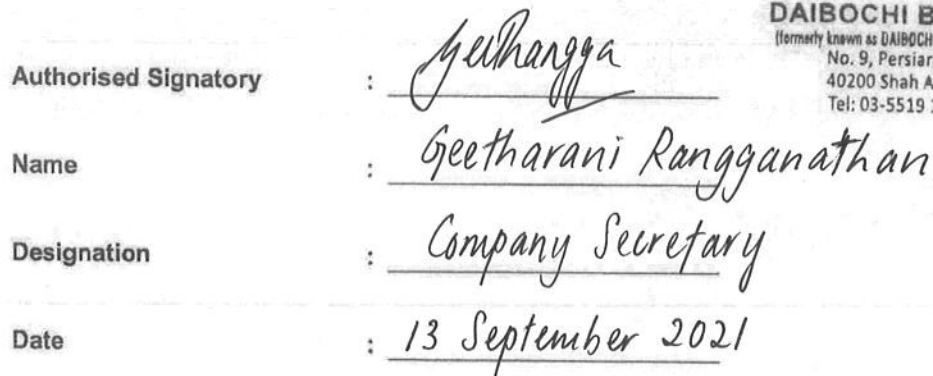 DAIBOCHI B
(formerly known as DAIBOCH
No. 9, Persiar
40200 Shah A
Tel: 03-5519
Authorised Signatory :
Name : Geetharani Rangganathan
Designation : Company Secretary
Date : 13 September 2021